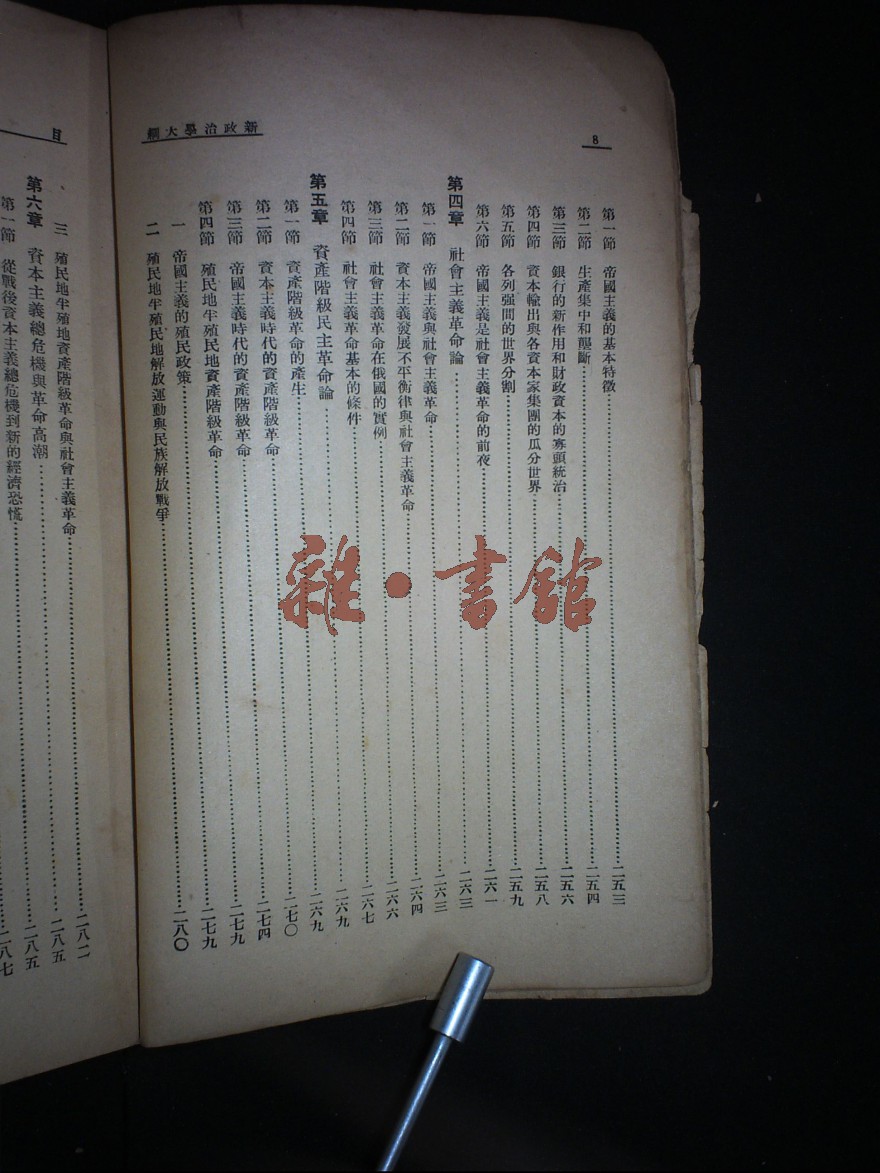 8
新政治學大綱
第一節 帝國主義的基本特徵……二五三
第二節 生產集中和壟斷……二五四
第三節 銀行的新作用和財政資本的寡頭統治……二五六
第四節 資本輸出與各資本家集團的瓜分世界……二五八
第五節 各列强間的世界分割……二五九
第六節 帝國主義是社會主義革命的前夜……二六一
第四章 社會主義革命論……二六三
第一節 帝國主義與社會主義革命……二六三
第二節 資本主義發展不平衡律與社會主義革命……二六四
第三節 社會主義革命在俄國的實例……二六六
第四節 社會主義革命基本的條件……二六七
第五章 資產階級民主革命論……二六九
第一節 資產階級革命的產生……二六九
第二節 資本主義時代的資產階級革命……二七〇
第三節 帝國主義時代的資產階級革命……二七四
第四節 殖民地半殖民地資產階級革命……二七九
一 帝國主義的殖民政策……二七九
二 殖民地半殖民地解放運動與民族解放戰爭……二八〇
目
三 殖民地半殖地資產階級革命與社會主義革命……二八二
第六章 資本主義總危機與革命高潮……二八五
第一節 從戰後資本主義總危機到新的經濟恐慌……二八五
二八七
雜·書館